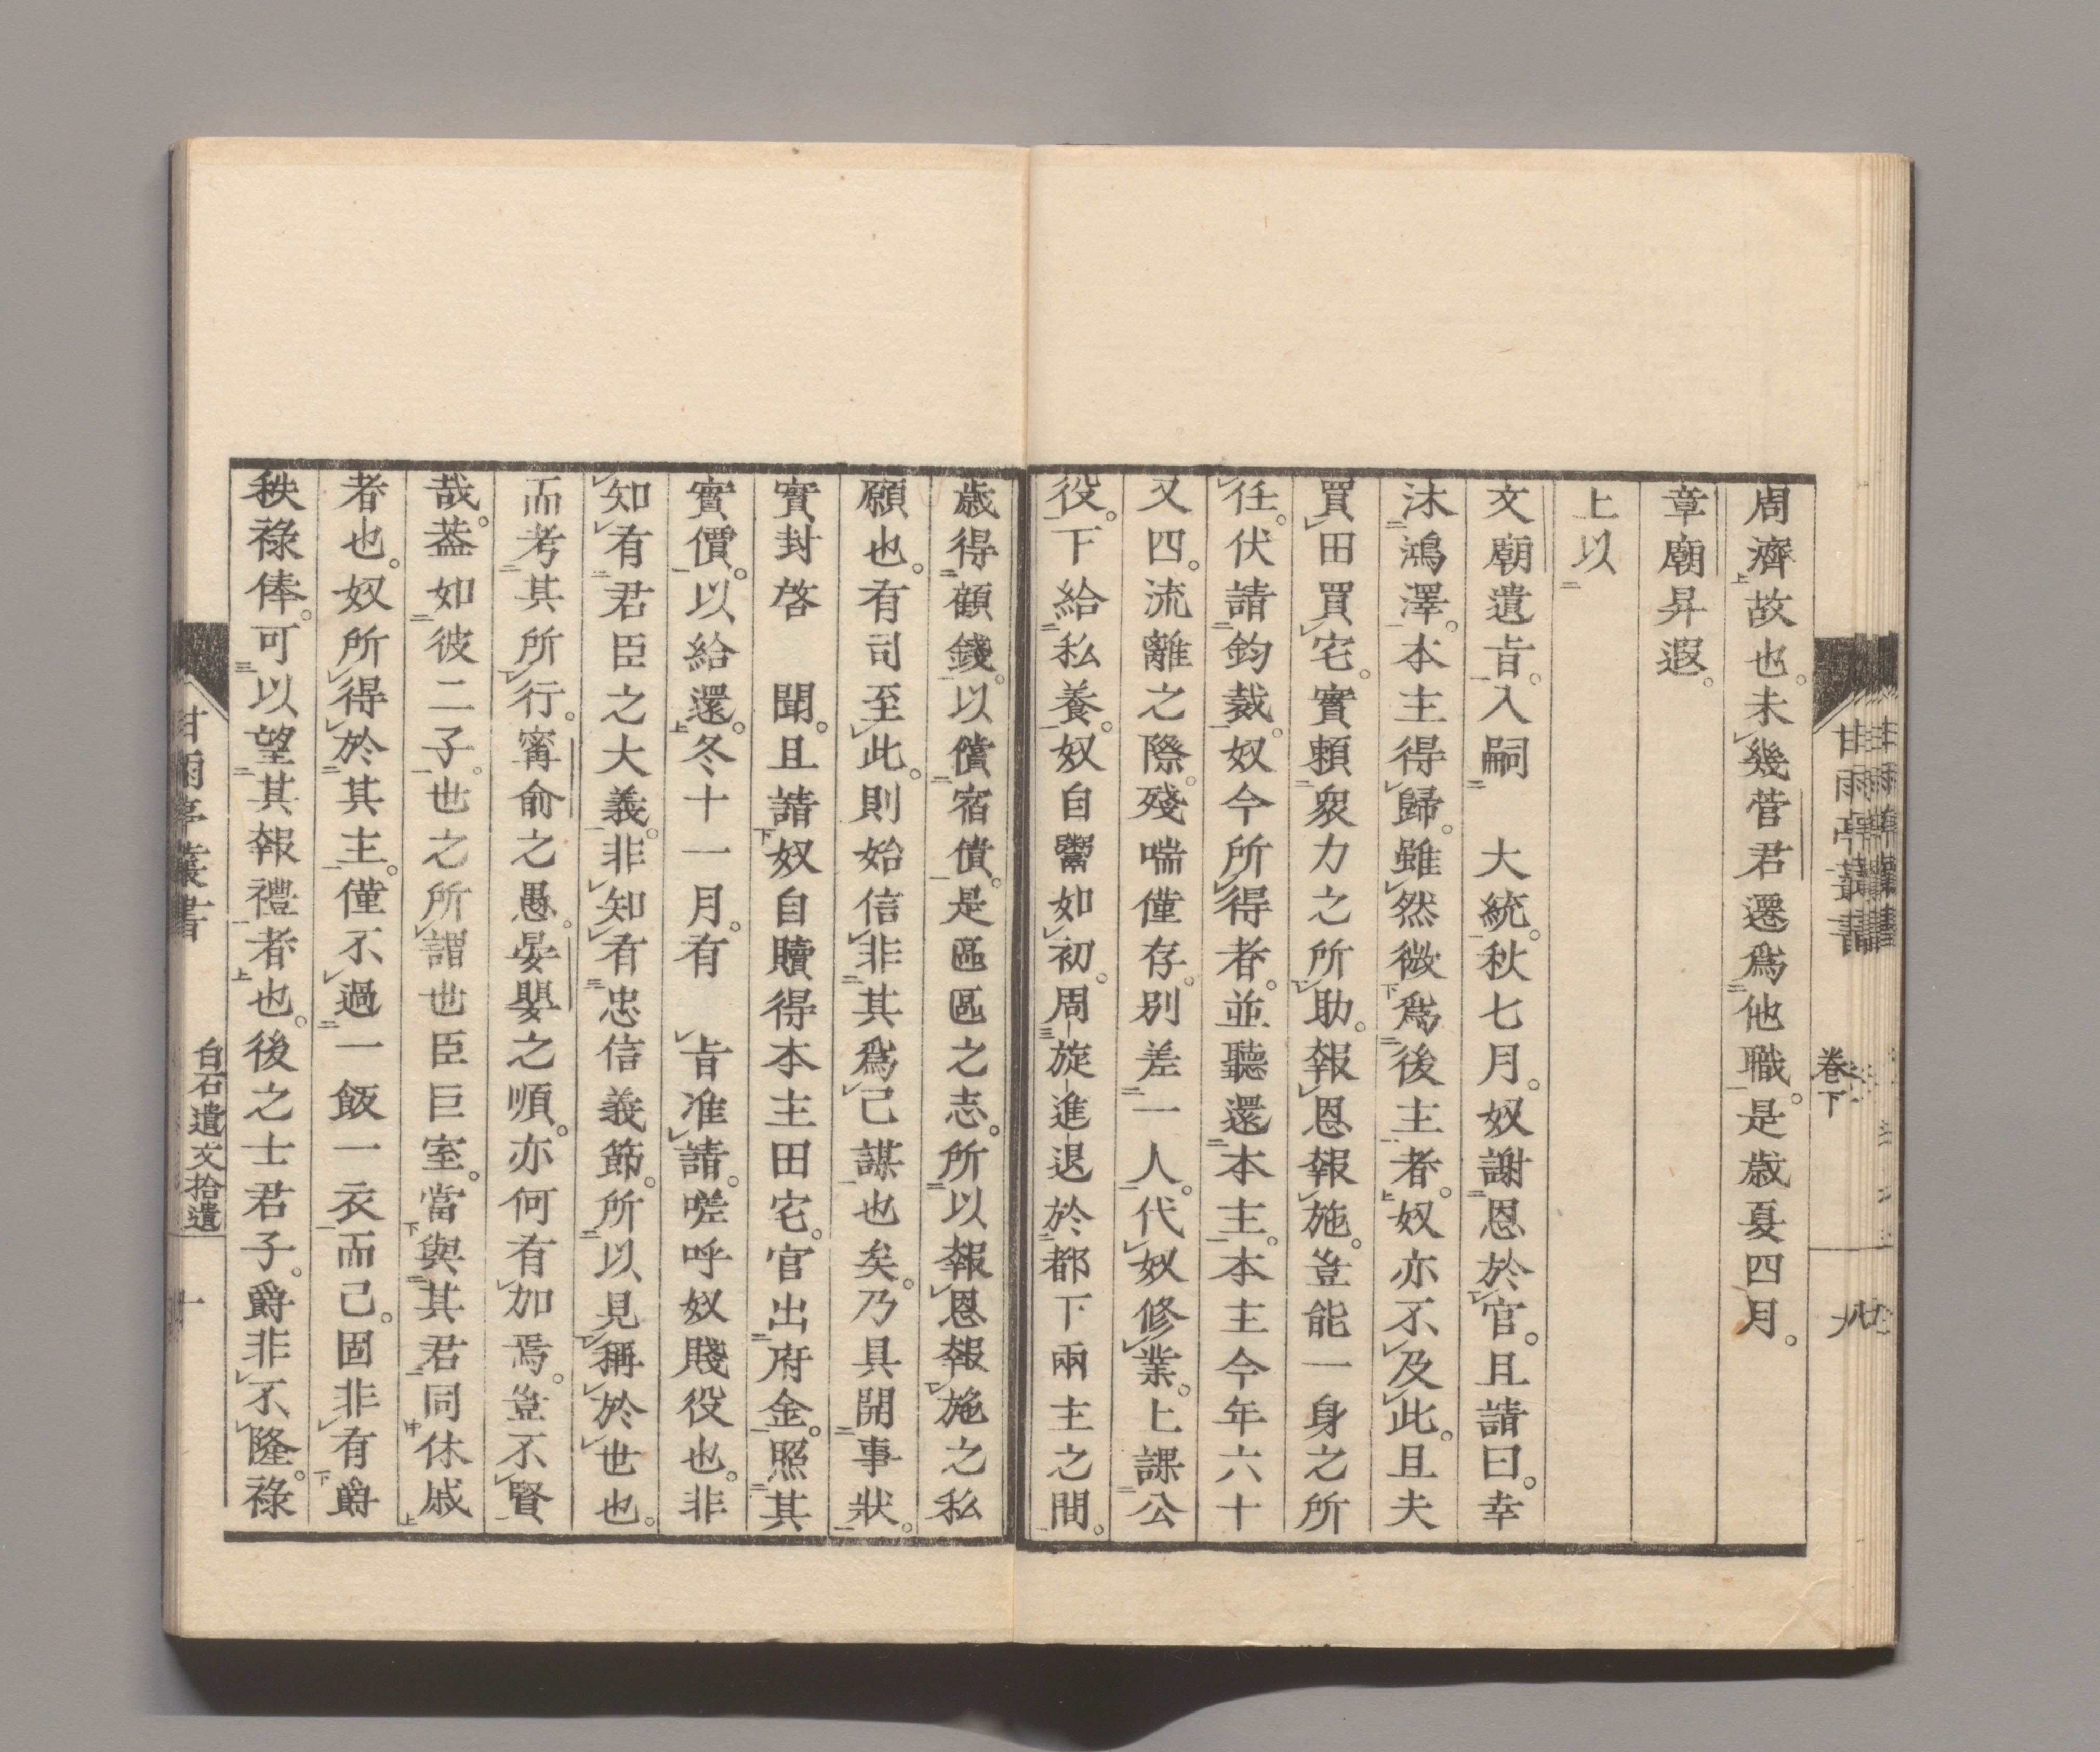 周濟故也。未幾菅君遷爲他職。是歲夏四月。
章廟昇遐。
上以
文廟遺旨。入嗣　大統。秋七月。奴謝恩於官。且請曰。幸
沐鴻澤。本主得歸。雖然微爲後主者。奴亦不及此。且夫
買田買宅。實賴衆力之所助。報恩報施。豈能一身之所
任。伏請鈞裁。奴今所得者。並聽還本主。本主今年六十
又四。流離之際。殘喘僅存。別差一人。代奴修業。上課公
役。下給私養。奴自鬻如初。周旋進退於都下兩主之間。
歲得顧錢。以償宿債。是區區之志。所以報恩報施之私
願也。有司至此。則始信非其爲己謀也矣。乃具開事狀。
實封啓　聞。且請奴自贖得本主田宅。官出府金。照其
實價。以給還。冬十一月。有　旨准請。嗟呼奴賤役也。非
知有君臣之大義。非知有忠信義節。所以見稱於世也。
而考其所行。甯俞之愚。晏嬰之順。亦何有加焉。豈不賢
哉。葢如彼二子。世之所謂世臣巨室。當與其君同休戚
者也。奴所得於其主。僅不過一飯一衣而己。固非有爵
秩祿俸。可以望其報禮者也。後之士君子。爵非不隆。祿
甘雨亭叢書
卷下
九
甘雨亭叢書
白石遺文拾遺
十